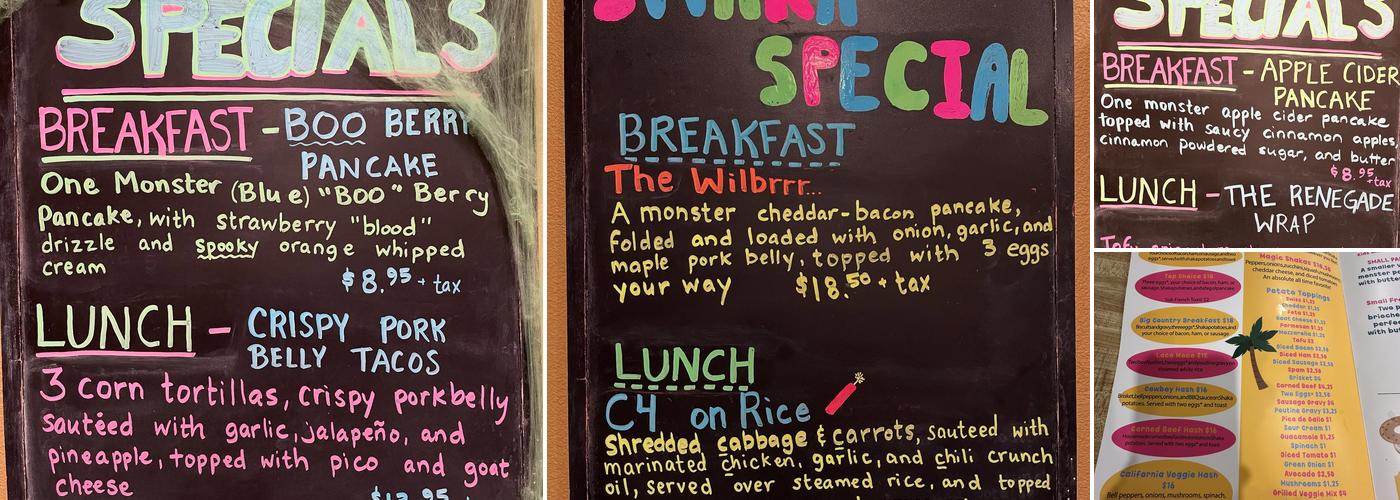 SPECIALS
BREAKFAST - BOO BERRY
PANCAKE
One Monster (Blue) "BOO" Berry
Pancake, with strawberry "blood"
drizzle and spooky orange whipped
cream
$8.95 + tax
LUNCH - CRISPY PORK
BELLY TACOS
3 corn tortillas, crispy porkbelly
sautéed with garlic, jalapeño, and
pineapple, topped with pico and goat
cheese
SPECIAL
BREAKFAST
The Wilbrrr...
A monster cheddar-bacon pancake,
folded and loaded with onion, garlic, and
maple pork belly, topped with 3 eggs
your way $18.50 + tax
LUNCH
C4 on Rice
Shredded cabbage & carrots, sauteed with
marinated chicken, garlic, and chili crunch
oil, served over steamed rice, and topped
SPECIALS
BREAKFAST - APPLE CIDER
PANCAKE
One monster apple cider pancake
topped with saucy cinnamon apples,
cinnamon powdered sugar, and butter
$8.95 +tax
LUNCH - THE RENEGADE
WRAP
Top Choice $18
Three eggs*, your choice of bacon, ham, or
sausage, Shaka potatoes, and single pancake
Sub French Toast $2
Big Country Breakfast $18
Biscuits and gravy, three eggs*, Shaka potatoes, and
your choice of bacon, ham, or sausage
Loco Moco $15
steamed white rice
Cowboy Hash $16
Brisket, bell peppers, onions, and BBQ sauce on Shaka
potatoes. Served with two eggs* and toast
Corned Beef Hash $16
potatoes. Served with two eggs* and toast
California Veggie Hash
$16
Bell peppers, onions, mushrooms, spinach,
Magic Shakas $16.50
Peppers, onions, zucchini, squash, mushrooms,
cheddar cheese, and diced tomatoes
An absolute all time favorite!
Potato Toppings
Swiss $1.25
Cheddar $1.25
Feta $1.25
Goat Cheese $1.25
Parmesan $1.25
Mozzarella $1.25
Tofu $3
Diced Bacon $2.50
Diced Ham $2.50
Diced Sausage $2.50
Spam $2.50
Brisket $6
Corned Beef $4.25
Two Eggs* $3.50
Sausage Gravy $4
Poutine Gravy $3.25
Pico de Gallo $1
Sour Cream $1
Guacamole $1.25
Spinach $1
Diced Tomato $1
Green Onion $1
Avocado $2.50
Mushrooms $1.25
Grilled Veggie Mix $4